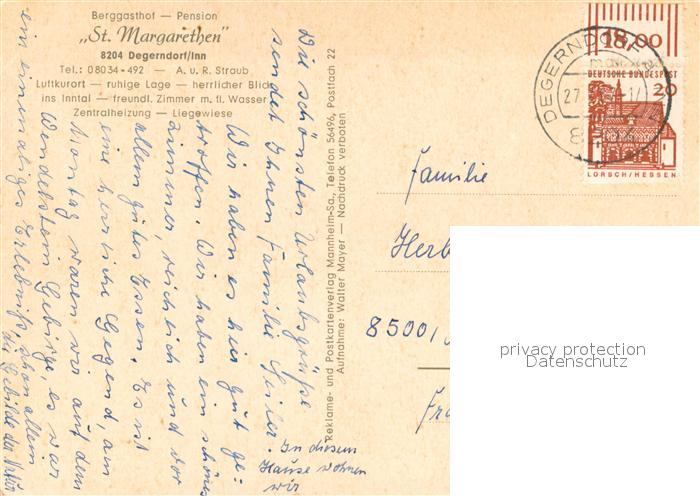 Berggasthof — Pension
„St. Margarethen"
8204 Degerndorf/Inn
Tel.: 08034-492 — A. u. R. Straub
Luftkurort — ruhige Lage — herrlicher Blick
ins Inntal — freundl. Zimmer m. fl. Wasser
Zentralheizung — Liegewiese
Die schönsten Urlaubsgrüße
sendet Ihnen Familie Seiler.
Wir haben es hier gut ge-
troffen. Wir haben ein schönes
Zimmer, reichlich und vor
allem gutes Essen. Es ist
eine herrliche Gegend, am
Montag waren wir auf dem
Wendelstein Gebirge, es war
ein einmaliges Erlebniß, schon allein
die Gebilde der Natur
In diesem
Hause wohnen
wir
Reklame- und Postkartenverlag Mannheim-Sa., Telefon 56496, Postfach 22
Aufnahme: Walter Mayer — Nachdruck verboten
18,00
DEUTSCHE BUNDESPOST
20
LORSCH/HESSEN
DEGERNDORF
27
Familie
Herb
8500/
Fr
privacy protection
Datenschutz